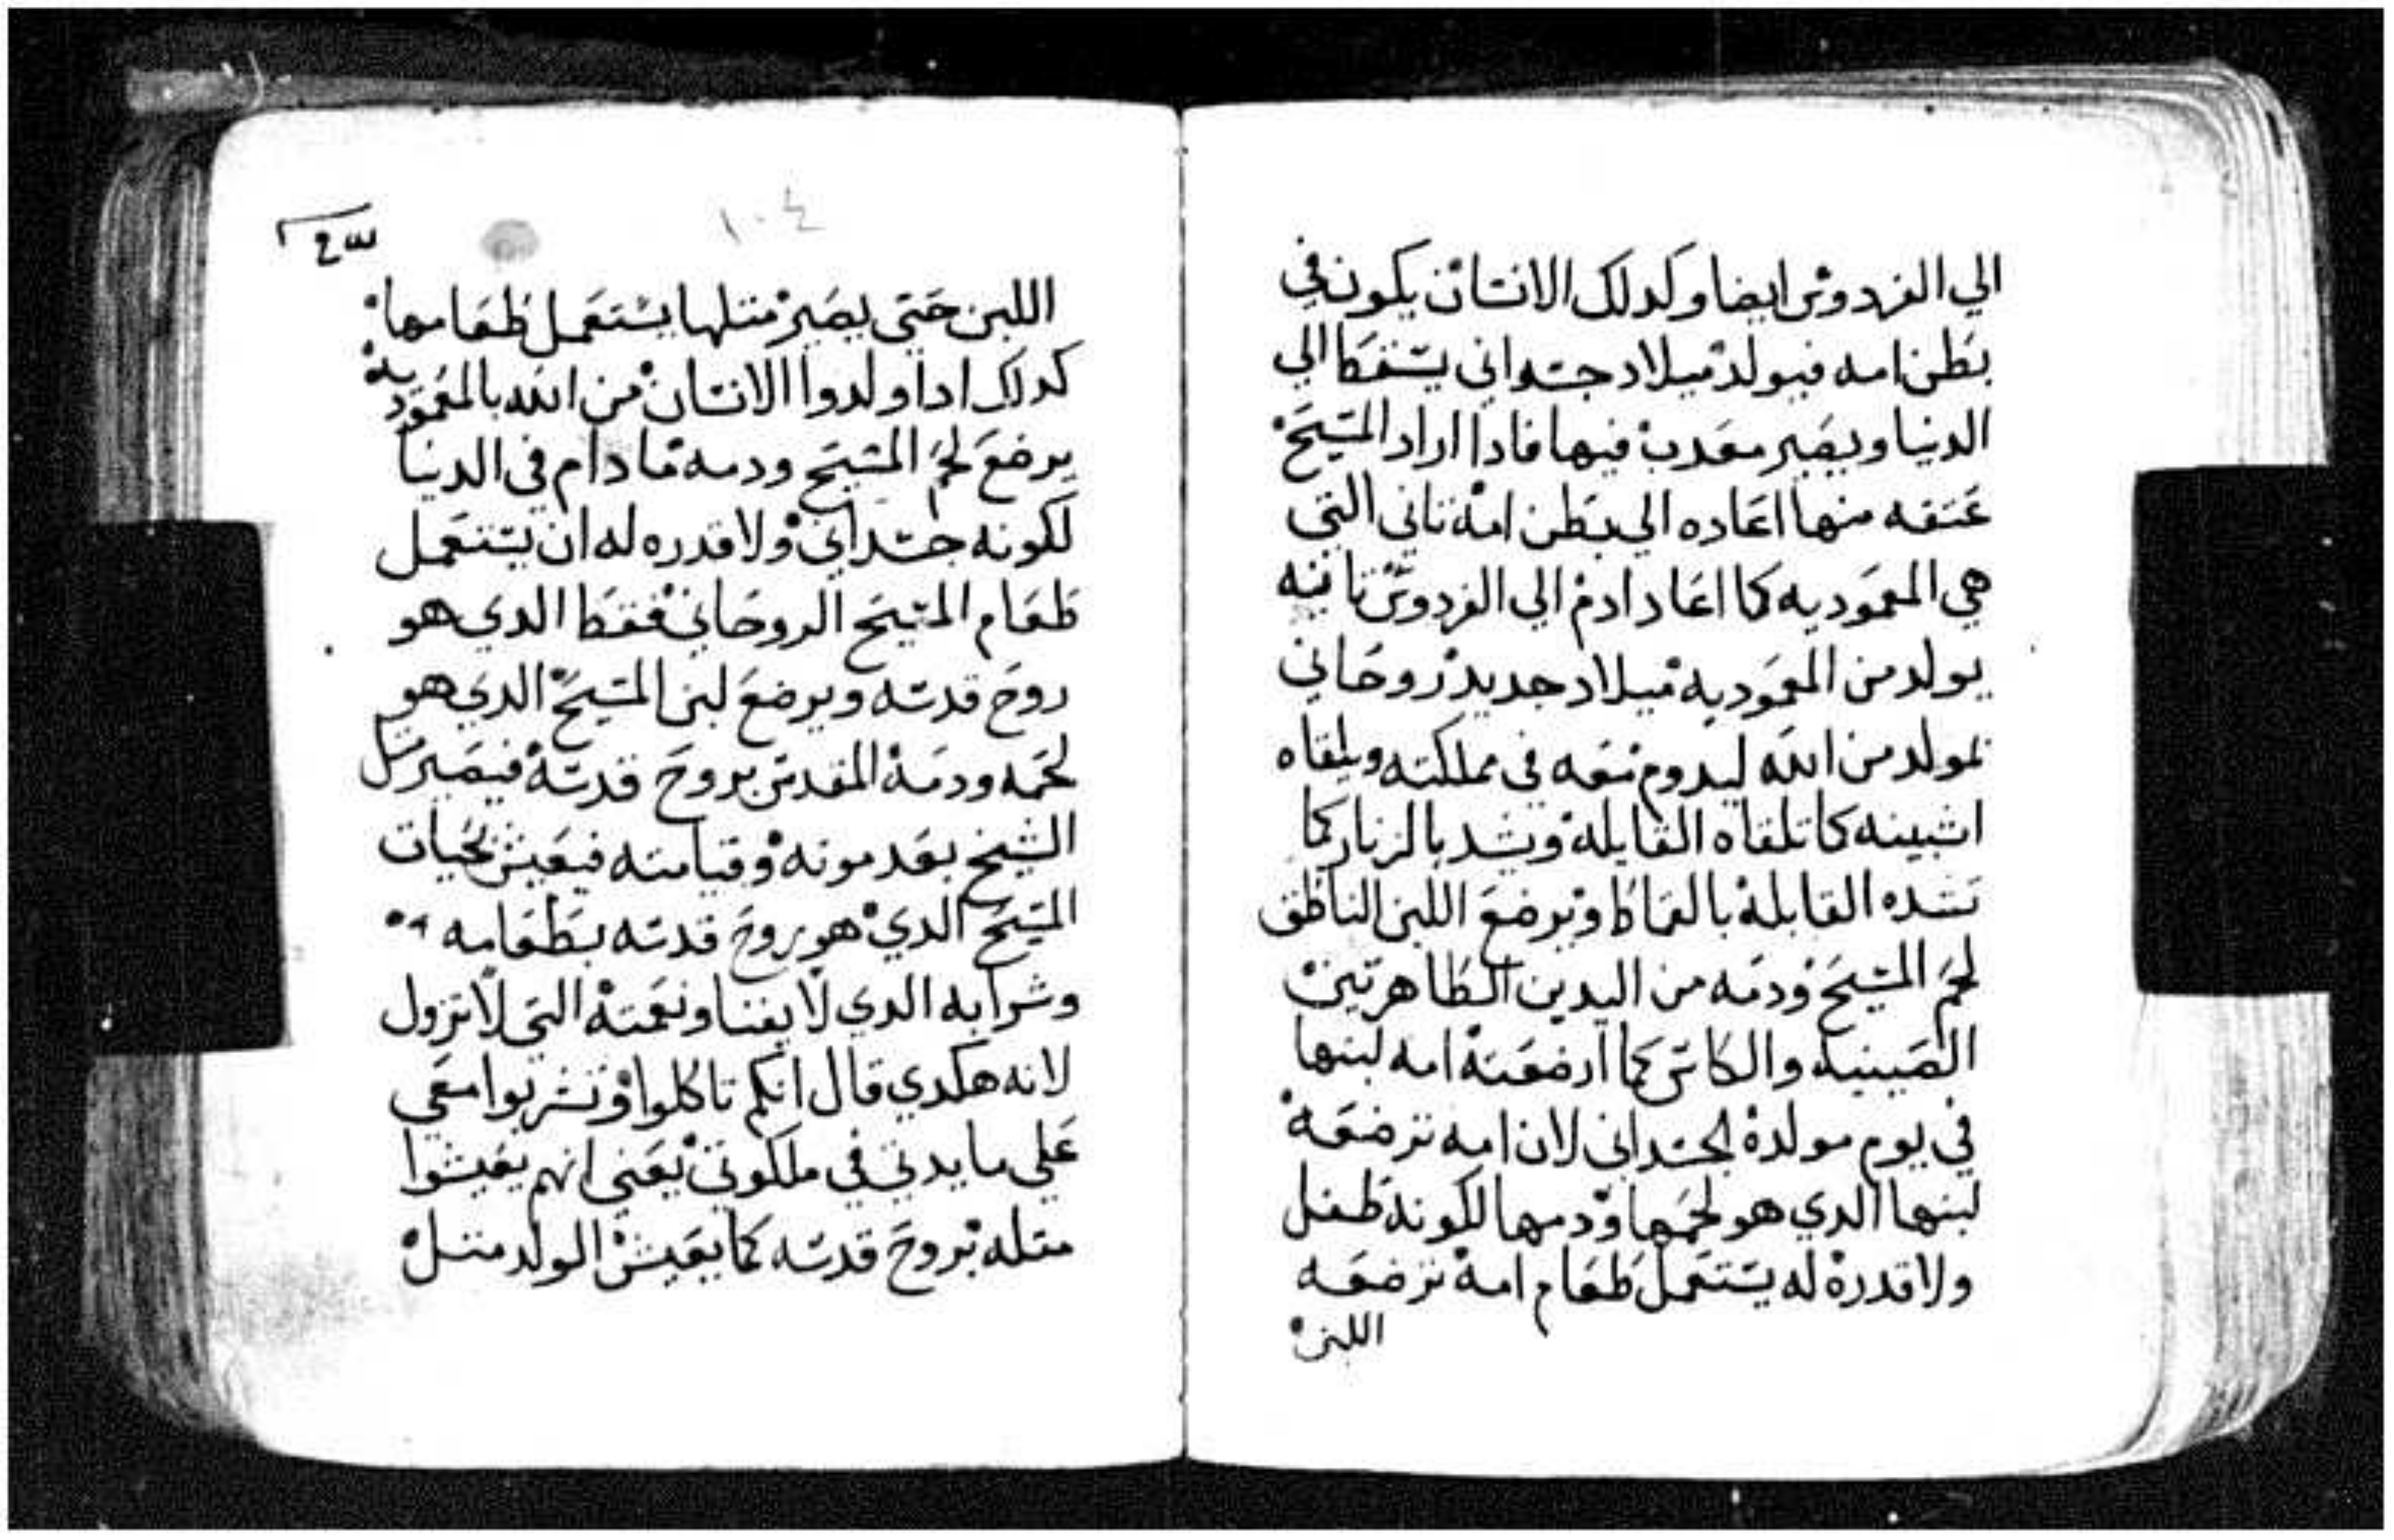 الي الفردوس ايضا وكدلك الانسان يكون في
بطن امه فيولد ميلاد جسداني يسقط الي
الدنيا ويصير معدب فيها فادا اراد المسيح
عتقه منها اعاده الي بطن امه تاني التي
هي المعموديه كما اعاد ادم الي الفردوس تانيه
يولد من المعموديه ميلاد جديد روحاني
لمولد من الله ليدوم معه في مملكته ويلقاه
اشبينه كما تلقاه القابله ويشد بالزنار كما
تشده القابله بالقماط ويرضع اللبن الناطق
لحم المسيح ودمه من اليدين الطاهرتين
الصينيه والكاس كما ارضعته امه لبنها
في يوم مولده الجسداني لان امه ترضعه
لبنها الدي هو لحمها ودمها لكونه طفل
ولا قدره له يستعمل طعام امه ترضعه
اللبن
١٠٤
اللبن حتي يصير متلها يستعمل طعامها
كدلك ادا ولدوا الانسان من الله بالمعموديه
يرضع لحم المسيح ودمه ما دام في الدنيا
لكونه جسداني ولا قدره له ان يستعمل
طعام المسيح الروحاني فقط الدي هو
روح قدسه ويرضع لبن المسيح الدي هو
لحمه ودمه المقدس بروح قدسه فيصير متل
الشيخ بعد موته وقيامته فيعيش بحيات
المسيح الدي هو روح قدسه بطعامه
وشرابه الدي لا يفنا ونعمته التي لا تزول
لانه هكدي قال انكم تاكلوا وتشربوا معي
علي مايدتي في ملكوتي يعني انهم يعيشوا
متله بروح قدسه كما يعيش الولد متل